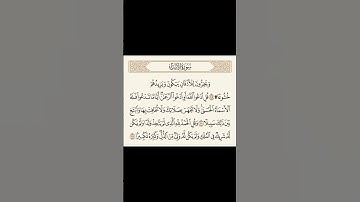 سُورَةُ الإِسْرَاءِ
وَيَخِرُّونَ لِلْأَذْقَانِ يَبْكُونَ وَيَزِيدُهُمْ
خُشُوعًا ۩ قُلِ ٱدْعُوا۟ ٱللَّهَ أَوِ ٱدْعُوا۟ ٱلرَّحْمَٰنَ أَيًّا مَّا تَدْعُوا۟ فَلَهُ
ٱلْأَسْمَآءُ ٱلْحُسْنَىٰ وَلَا تَجْهَرْ بِصَلَاتِكَ وَلَا تُخَافِتْ بِهَا وَٱبْتَغِ
بَيْنَ ذَٰلِكَ سَبِيلًا ۝ وَقُلِ ٱلْحَمْدُ لِلَّهِ ٱلَّذِى لَمْ يَتَّخِذْ وَلَدًا وَلَمْ يَكُن
لَّهُۥ شَرِيكٌ فِى ٱلْمُلْكِ وَلَمْ يَكُن لَّهُۥ وَلِىٌّ مِّنَ ٱلذُّلِّ وَكَبِّرْهُ تَكْبِيرًا ۝